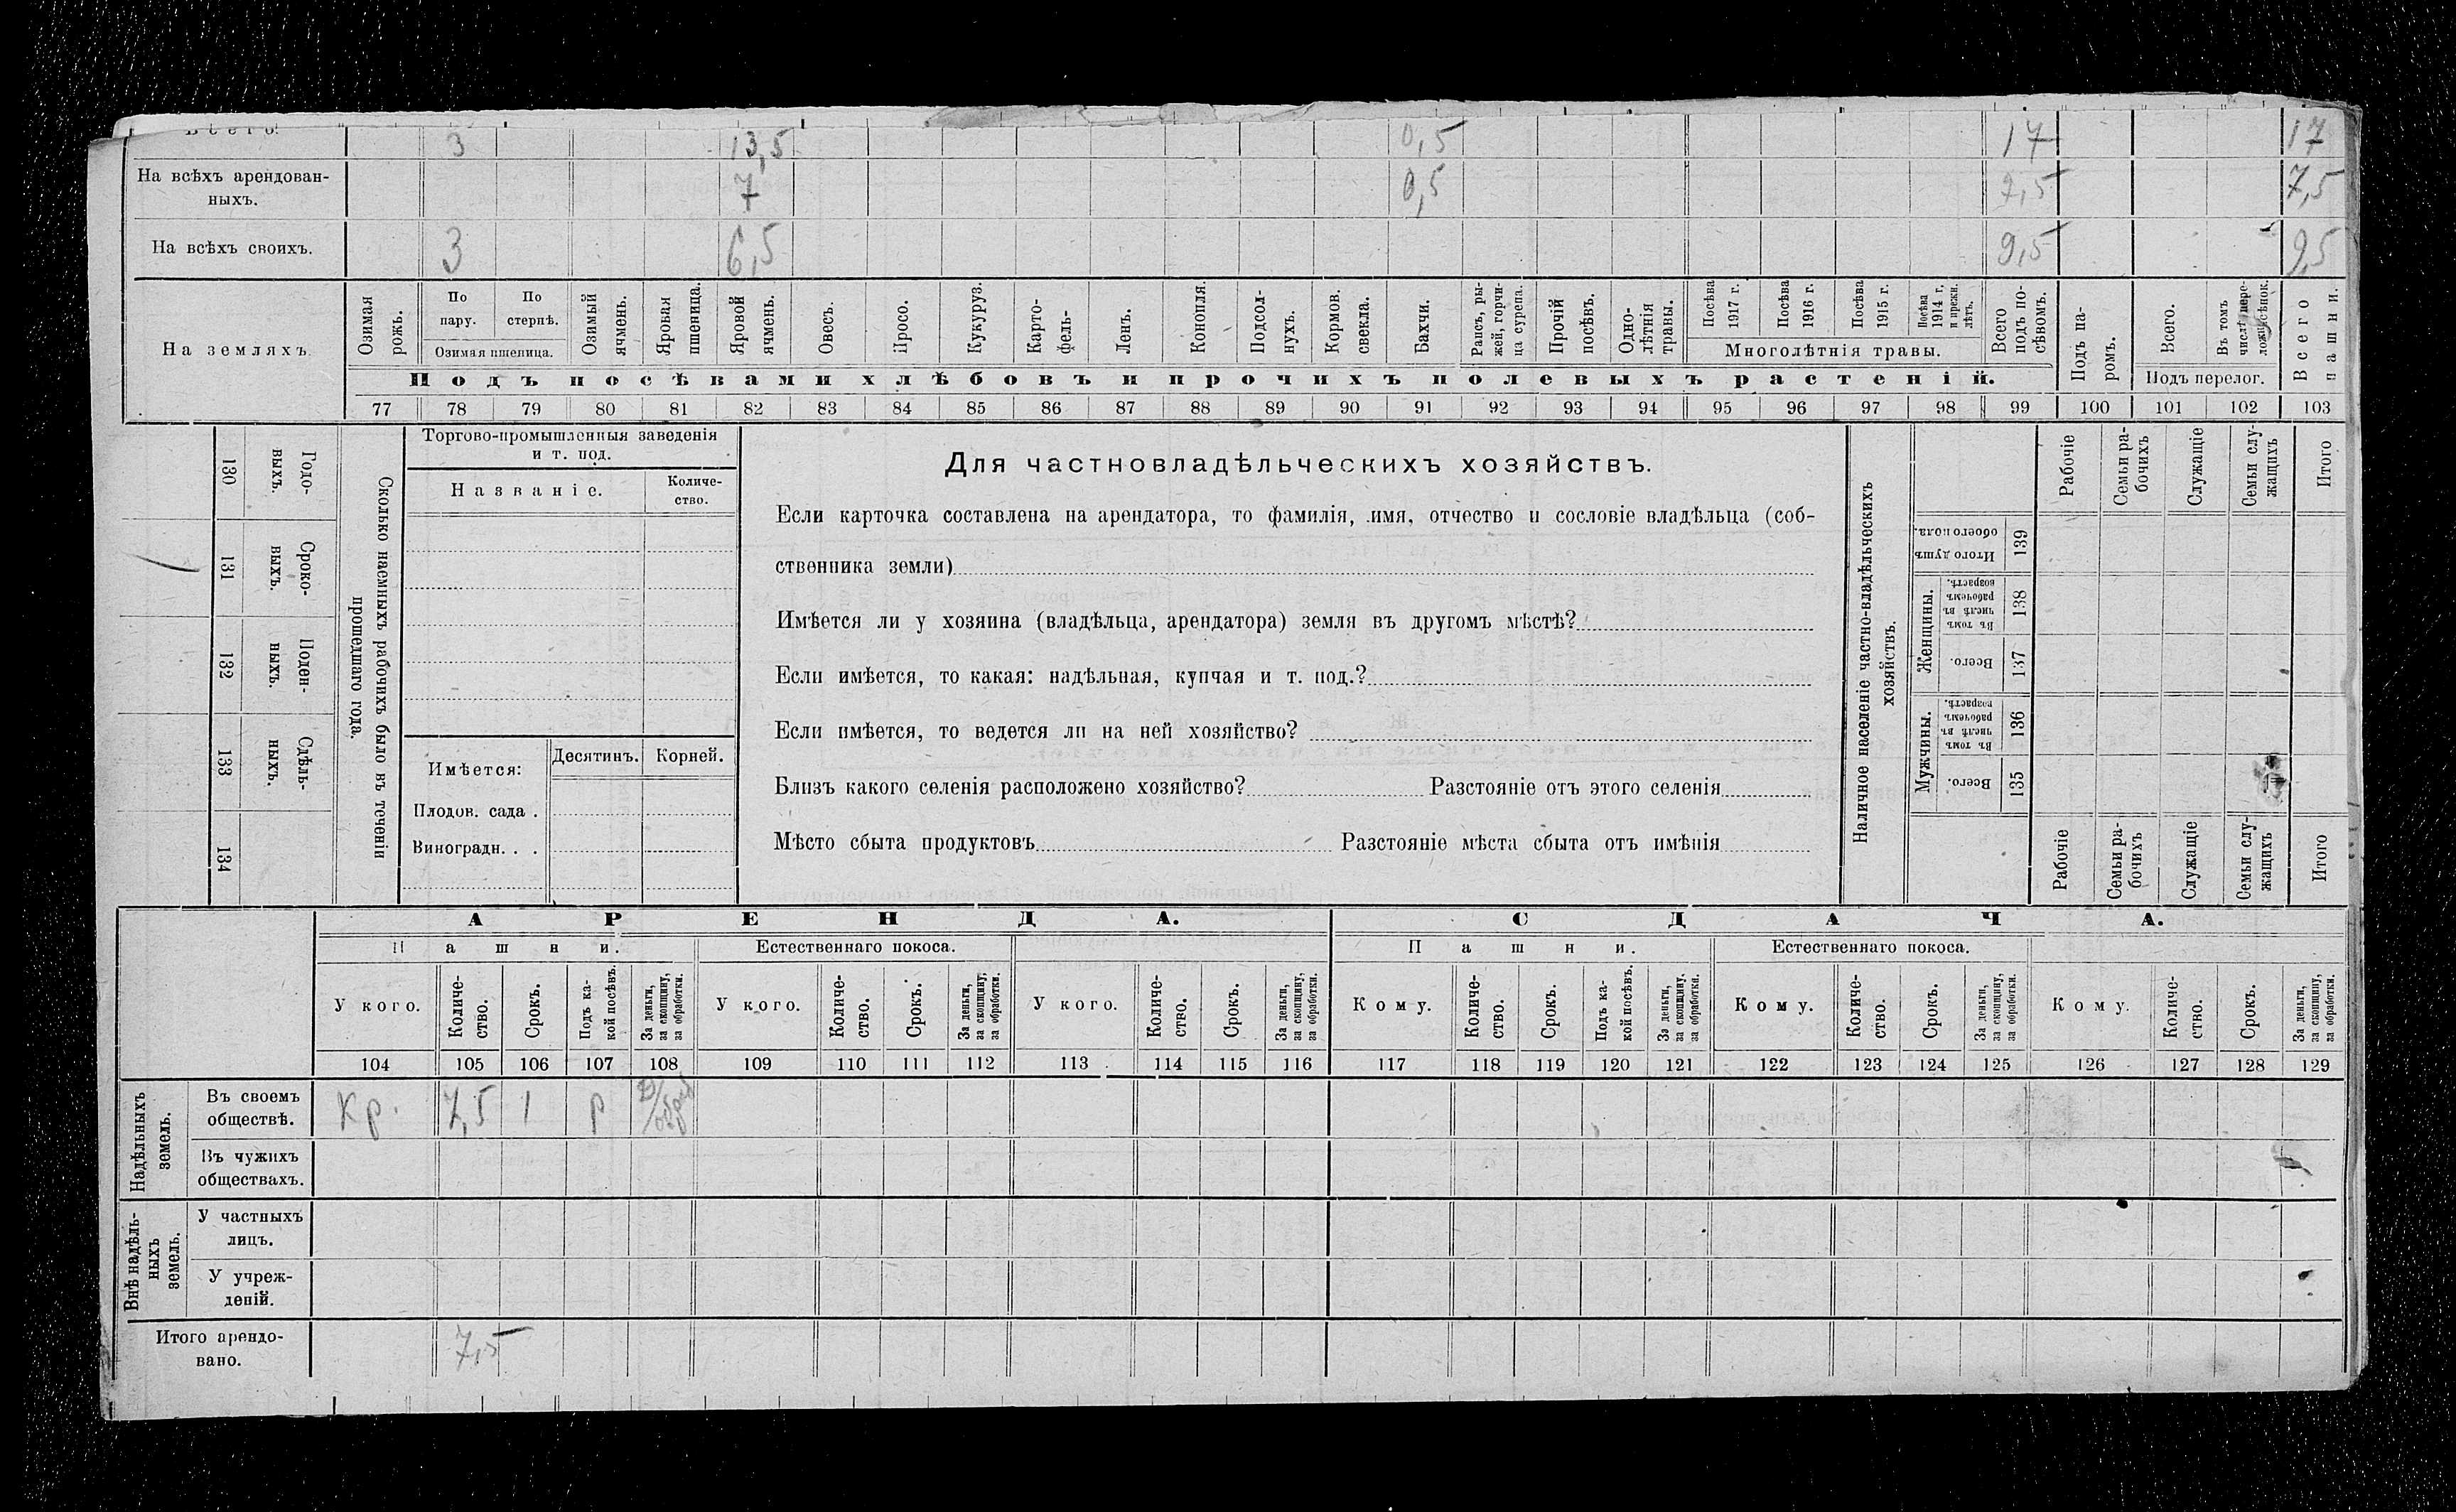 Всего:	3	13,5	0,5	17	17
На всѣхъ арендован-
ныхъ.	7	0,5	7,5	7,5
На всѣхъ своихъ.	3	6,5	9,5	9,5
На земляхъ.
Озимая рожь.
По пару.
По стернѣ.
Озимая пшеница.
Озимый ячмень.
Яровая пшеница.
Яровой ячмень.
Овесъ.
Просо.
Кукуруз.
Карто-
фель.
Ленъ.
Конопля.
Подсол-
нухъ.
Кормов. свекла.
Бахчи.
Рапсъ, ры-
жей, горчи-
ца сурепа.
Прочій посѣвъ.
Одно-
лѣтнія травы.
Посѣва 1917 г.
Посѣва 1916 г.
Посѣва 1915 г.
Посѣва 1914 г. и прежн. лѣтъ.
Многолѣтнія травы.
Всего подъ по-
сѣвомъ.
Подъ па-
ромъ.
Всего.
Въ томъ числѣ пере-
Подъ перелог.
Всего пашни.
Подъ посѣвами хлѣбовъ и прочихъ полевыхъ растеній.
77 78 79 80 81 82 83 84 85 86 87 88 89 90 91 92 93 94 95 96 97 98 99 100 101 102 103
130 Годо-
выхъ.
131 Сроко-
выхъ.
132 Поден-
ныхъ.
133 Сдѣль-
ныхъ.
134
Сколько наемныхъ рабочихъ было въ теченіи
прошедшаго года.
Торгово-промышленныя заведенія
и т. под.
Названіе.
Количе-
ство.
Имѣется:
Десятинъ.
Корней.
Плодов. сада .
Виноградн. . .
Для частновладѣльческихъ хозяйствъ.
Если карточка составлена на арендатора, то фамилія, имя, отчество и сословіе владѣльца (соб-
ственника земли)
Имѣется ли у хозяина (владѣльца, арендатора) земля въ другомъ мѣстѣ?
Если имѣется, то какая: надѣльная, купчая и т. под.?
Если имѣется, то ведется ли на ней хозяйство?
Близъ какого селенія расположено хозяйство? Разстояніе отъ этого селенія
Мѣсто сбыта продуктовъ Разстояніе мѣста сбыта отъ имѣнія
Наличное населеніе частно-владѣльческихъ
хозяйствъ.
Рабочіе
Семьи ра-
бочихъ
Служащіе
Семьи слу-
жащихъ
Итого
Итого душъ обоего пола.
139
Женщины.
Въ томъ числѣ въ рабочемъ возрастѣ.
138
Всего.
137
Мужчины.
Въ томъ числѣ въ рабочемъ возрастѣ.
136
Всего.
135
Рабочіе
Семьи ра-
бочихъ
Служащіе
Семьи слу-
жащихъ
Итого
АРЕНДА.
СДАЧА.
Пашни.
Естественнаго покоса.
Пашни.
Естественнаго покоса.
У кого.
Количе-
ство.
Срокъ.
Подъ ка-
кой посѣвъ.
За деньги, за скопщину, за обработки.
У кого.
Количе-
ство.
Срокъ.
За деньги, за скопщину, за обработки.
У кого.
Количе-
ство.
Срокъ.
За деньги, за скопщину, за обработки.
Кому.
Количе-
ство.
Срокъ.
Подъ ка-
кой посѣвъ.
За деньги, за скопщину, за обработки.
Кому.
Количе-
ство.
Срокъ.
За деньги, за скопщину, за обработки.
Кому.
Количе-
ство.
Срокъ.
За деньги, за скопщину, за обработки.
104 105 106 107 108 109 110 111 112 113 114 115 116 117 118 119 120 121 122 123 124 125 126 127 128 129
Надѣльныхъ
земель.
Въ своемъ
обществѣ.	Кр.	7,5	1	р
Въ чужихъ
обществахъ.
Внѣ надѣль-
ныхъ
земель.
У частныхъ
лицъ.
У учреж-
деній.
Итого арендо-
вано.	7,5